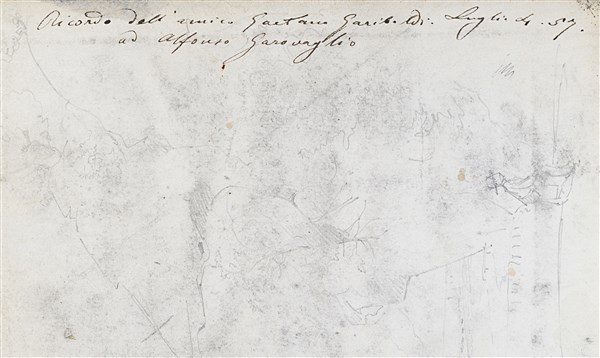 Ricordo dell'amico Gaetano Garibaldi. Luglio 4. 57.
ad Alfonso Garovaglio